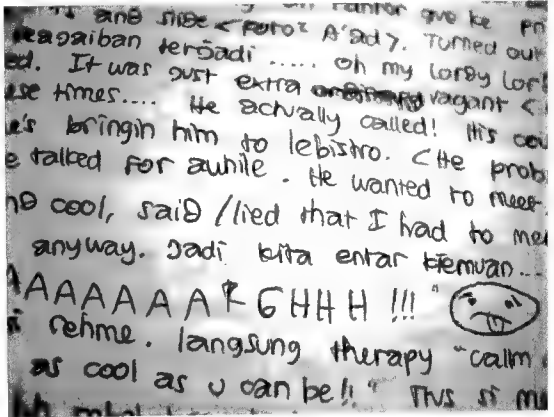 and side < foto2 A'ad 7. Turned out
keagaiban terjadi ..... oh my lordy lor
ed. It was just extra vagant <
se times.... He actually called! His
e's bringin him to lebistro. < He prob
e talked for awhile. He wanted to meet
cool, said / lied that I had to me
anyway. Jadi kita entar ktemuan...
AAAAAAARGHHH !!!"
rehme. langsung therapy "callm
as cool as u can be!!" Trus si